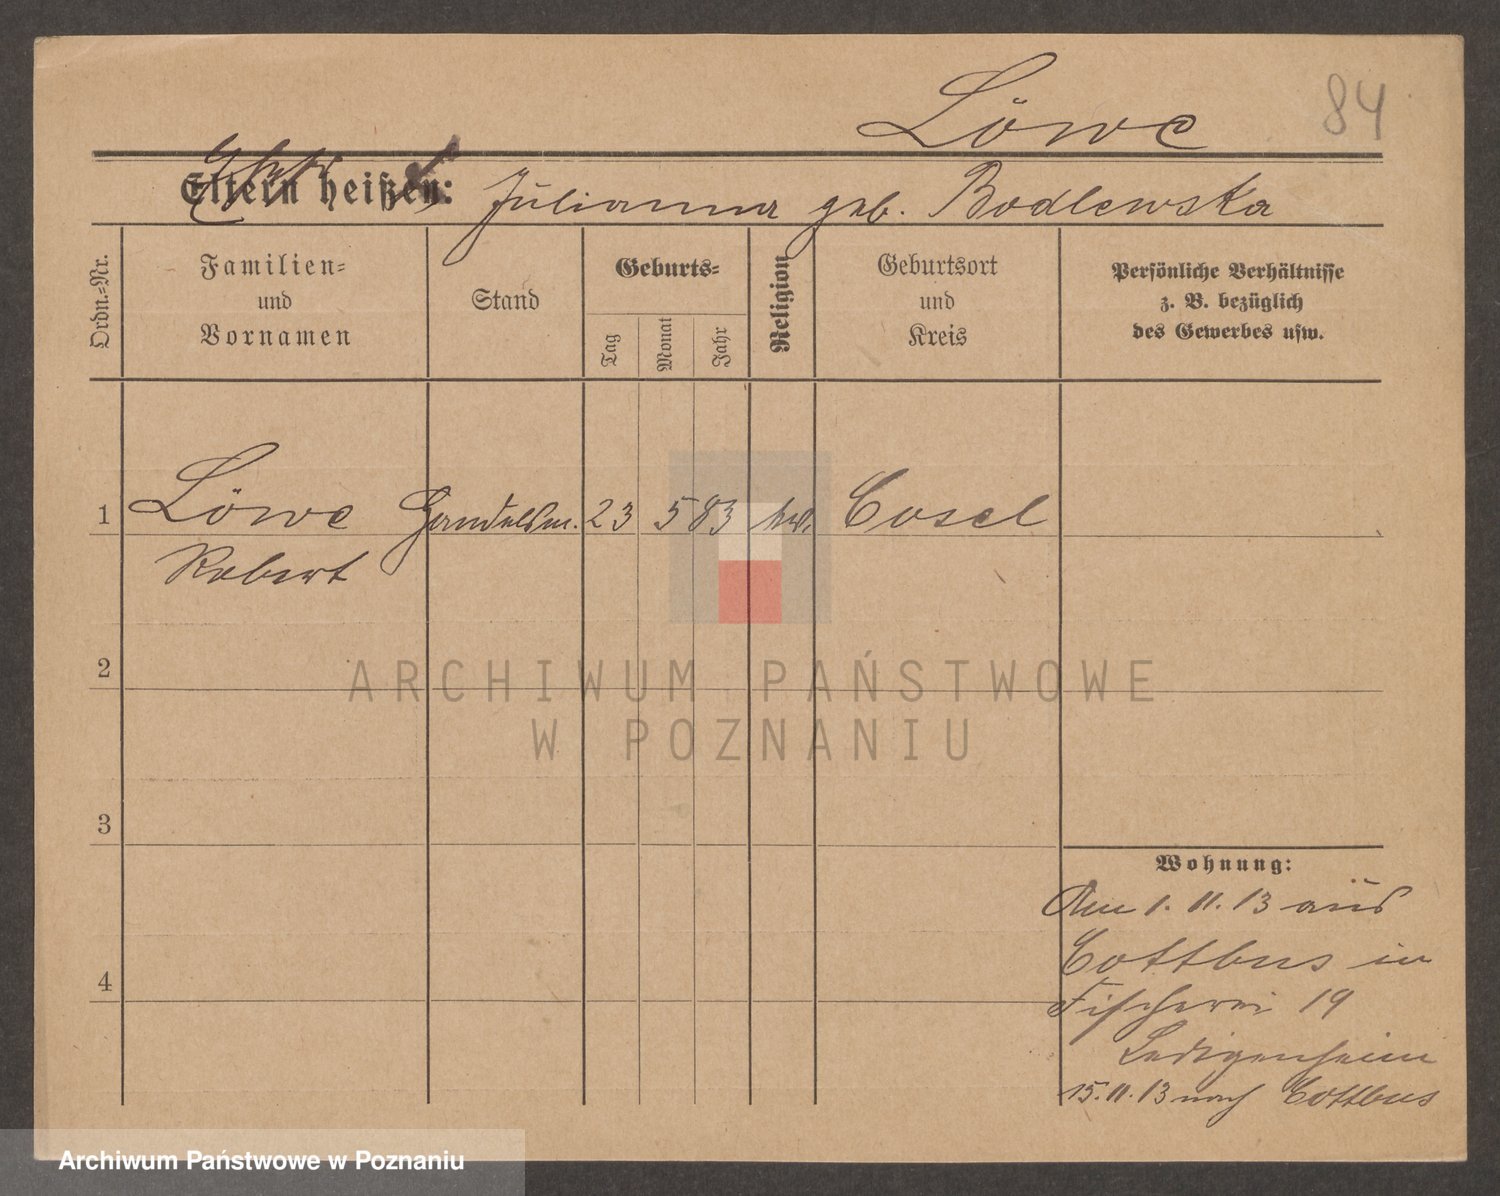 Löwe 84
Eltern heißen: Julianna geb. Bodlewska
Ordn.-Nr.
Familien-
und
Vornamen
Stand
Geburts-
Tag
Monat
Jahr
Religion
Geburtsort
und
Kreis
Persönliche Verhältnisse
z. B. bezüglich
des Gewerbes usw.
1 Löwe Handelsm. 23 5 83 Cosel
Robert
2
ARCHIWUM PAŃSTWOWE
W POZNANIU
3
Wohnung:
Am 1. 11. 13 aus
Cottbus in
Fischerei 19
Ledigenheim
15. 11. 13 nach Cottbus
4
Archiwum Państwowe w Poznaniu